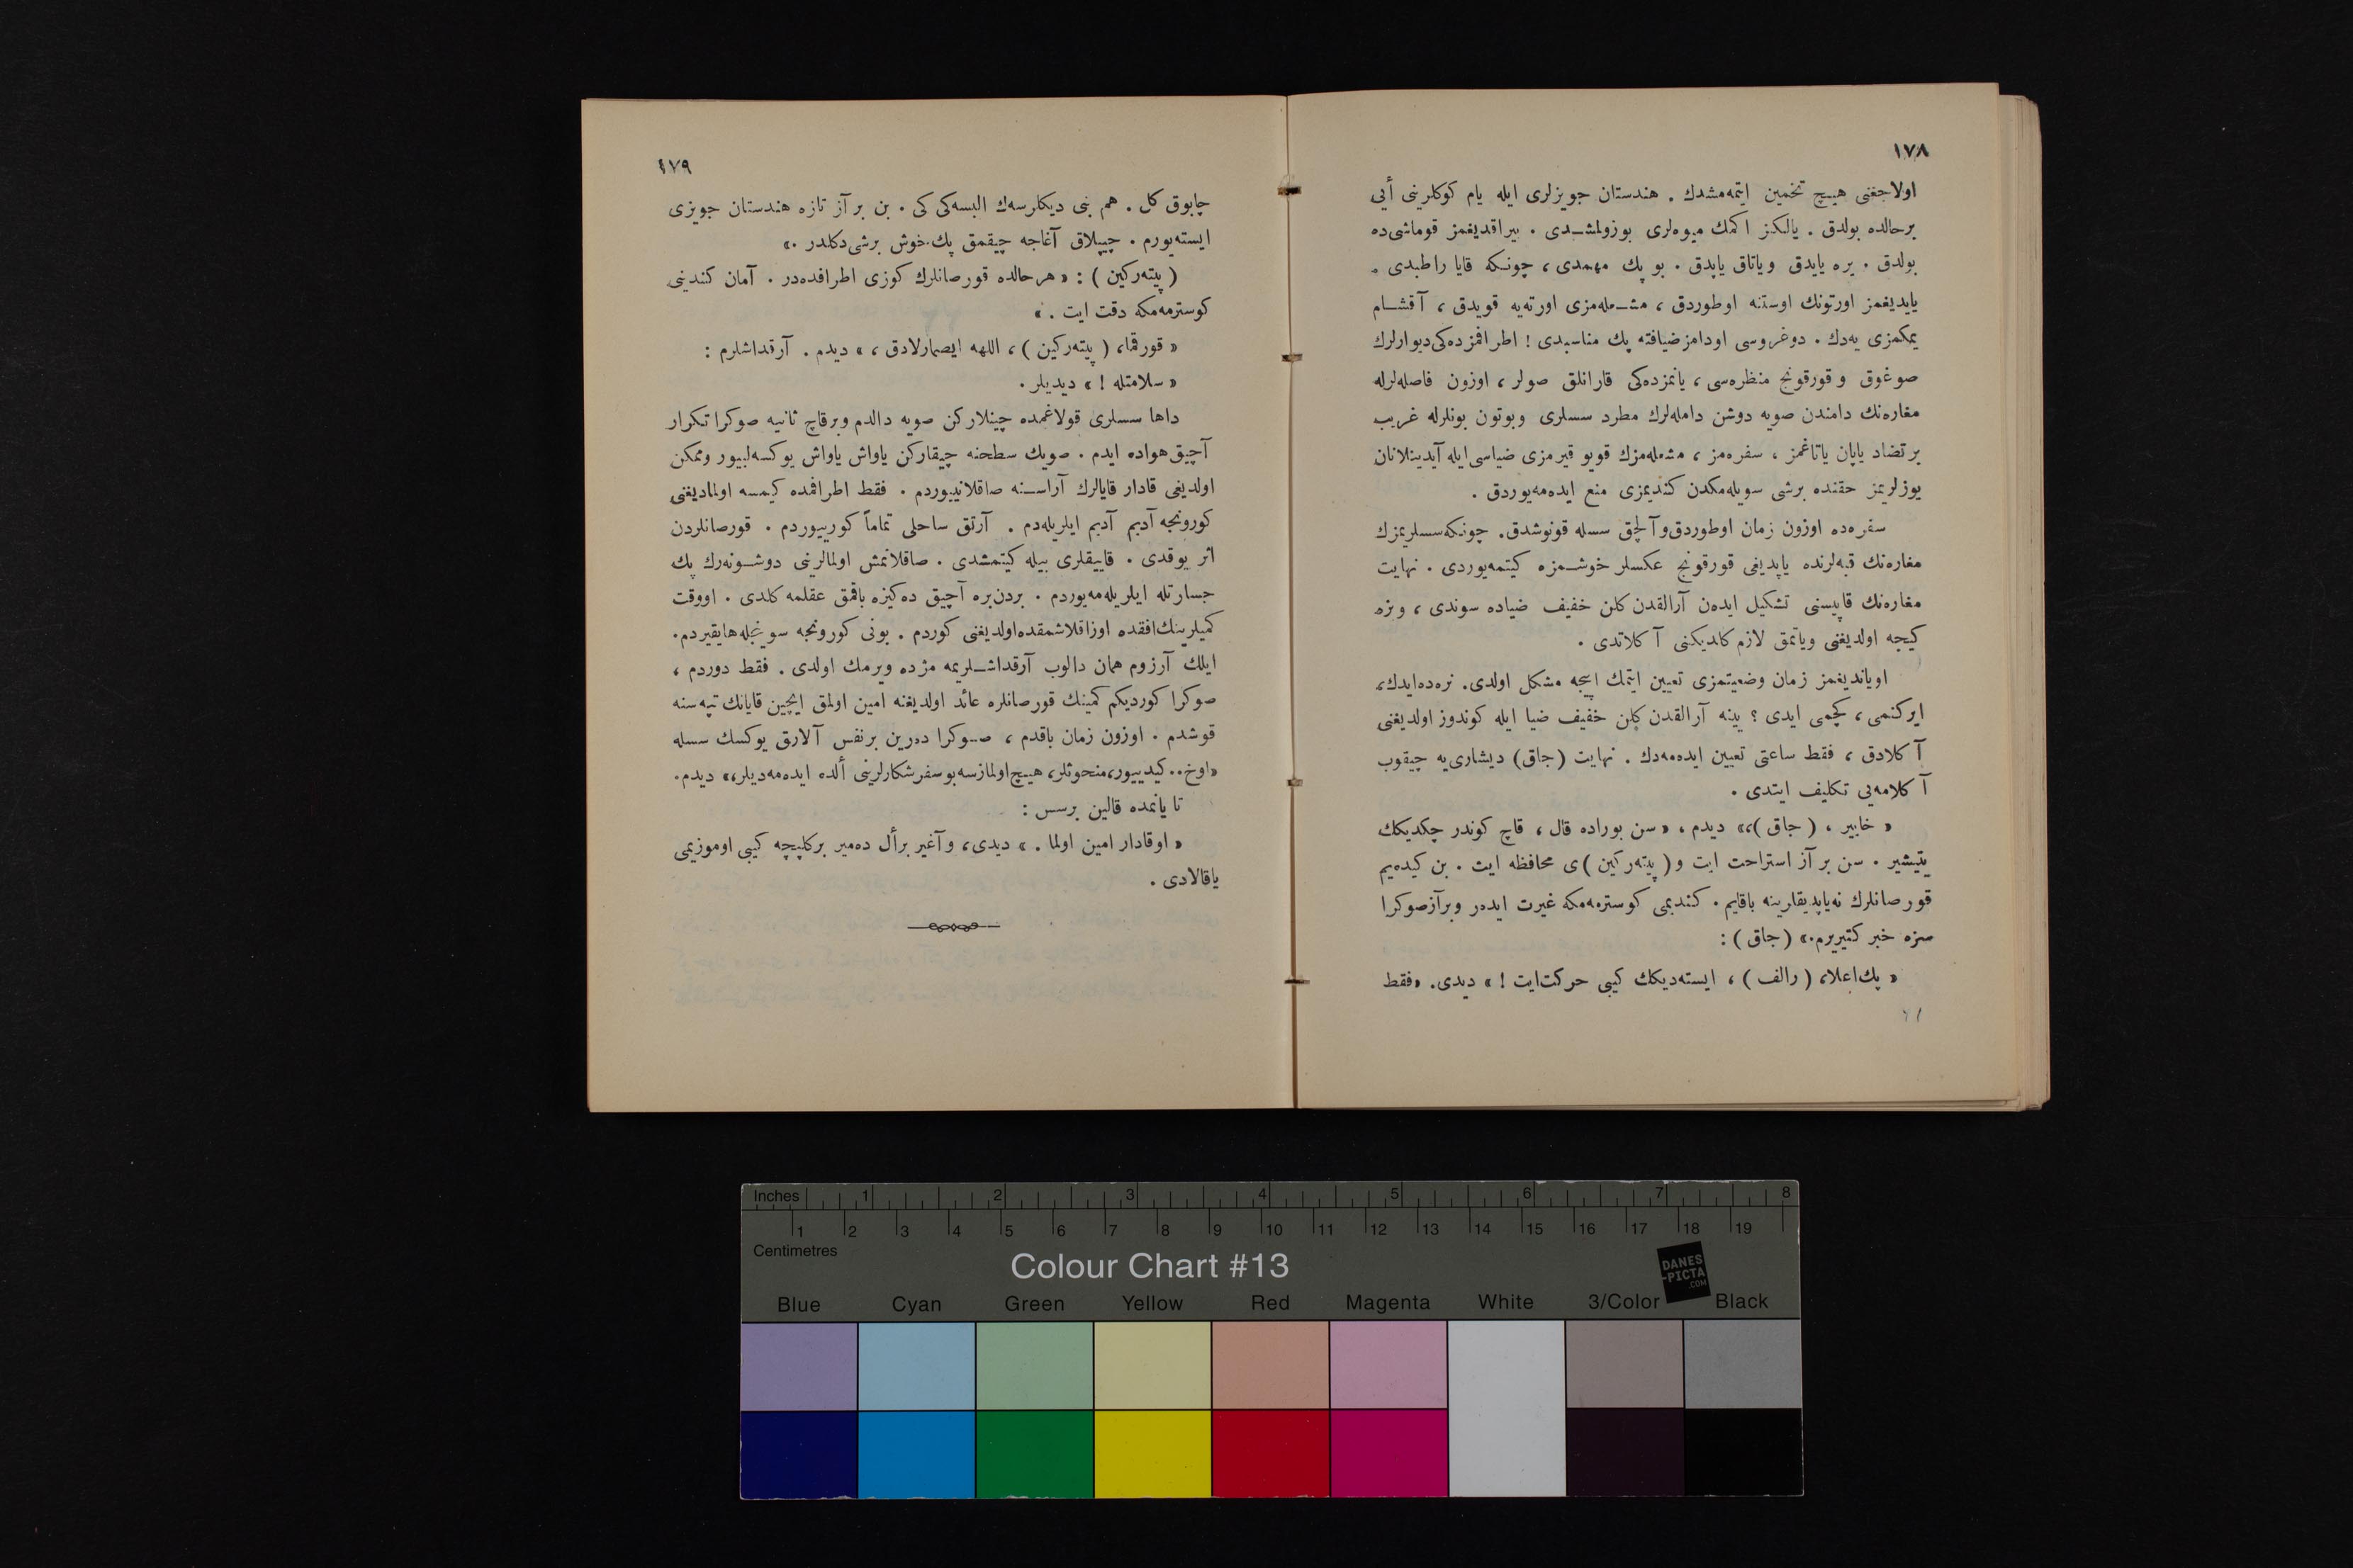 ١٧٨
اولاجغنی هیـچ تخمین ایتمه‌مشدك . هندستان جویزلری ایله یام کوکلرینی أیی
برحالده بولدق . یالکز اکمك میوه‌لری بوزولمشـدی . بیراقدیغمز قوماشی‌ده
بولدق . یره یایدق ویاتاق یاپدق . بو پك مهمدی ، چونـکه قایا راطبدی .
یایدیغمز اورتونك اوستنه اوطوردق ، مشـعله‌مزی اورته‌یه قویدق ، آقشـام
یمکمزی یه‌دك . دوغروسی اودامز ضیافته پك مناسبدی ! اطرافمزده‌کی دیوارلرك
صوغوق و قورقونج منظره‌سی ، یانمزده‌کی قارانلق صولر ، اوزون فاصله‌لرله
مغاره‌نك دامندن صویه دوشن دامله‌لرك مطرد سسلری وبوتون بونلرله غریب
برتضاد یاپان یاتاغمز ، سفره‌مز ، مشعله‌مزك قویو قیرمزی ضیاسی ایله آیدینلانان
یوزلریمز حقنده برشی سویله‌مکدن کندیمزی منع ایده‌مه‌یوردق .
سفره‌ده اوزون زمان اوطوردق‌وآلچق سسله قونوشدق. چونکه‌سسلریمزك
مغاره‌نك قبه‌لرنده یاپدیغی قورقونج عکسلر خوشـمزه کیتمه‌یوردی . نهایت
مغاره‌نك قاپیسنی تشکیل ایده‌ن آرالقدن کلن خفیف ضیاده سوندی ، وبزه
کیجه اولدیغنی ویاتمق لازم کلدیکنی آکلاتدی .
اویاندیغمز زمان وضعیتمزی تعیین ایتمك اپیجه مشکل اولدی. نره‌ده‌ایدك،
ایرکنمی ، کچمی ایدی ؟ یینه آرالقدن کلن خفیف ضیا ایله کوندوز اولدیغنی
آکلادق ، فقط ساعتی تعیین ایده‌مه‌دك . نهایت (جاق) دیشاری‌یه چیقوب
آکلامه‌یی تکلیف ایتدی .
« خاییر ، (جاق)،» دیدم ، « سن بوراده قال ، قاچ کوندر چکدیکك
یتیشیر . سن بر آز استراحت ایت و (پیته‌رکین) ی محافظه ایت . بن کیده‌یم
قورصانلرك نه‌یاپدیقلرینه باقایم . کندیمی کوسترمه‌مکه غیرت ایده‌ر وبرآزصوکرا
سزه خبر کتیریرم.» (جاق) :
« پك‌اعلا، (رالف) ، ایسته‌دیکك کیبی حرکت‌ایت ! » دیدی. «فقط
١٧٩
چابوق کل . هم بنی دیکلرسه‌ك البسه‌کی کی . بن بر آز تازه هندستان جویزی
ایسته‌یورم . چیپلاق آغاجه چیقمق پك خوش برشی‌دکلدر .»
(پیته‌رکین) : « هرحالده قورصانلرك کوزی اطرافده‌در . آمان کندینی
کوسترمه‌مکه دقت ایت . »
« قورقما، (پیته‌رکین) ، اللهه ایصمارلادق ، » دیدم . آرقداشلرم :
« سلامتله ! » دیدیلر .
داها سسلری قولاغمده چینلارکن صویه دالدم وبرقاچ ثانیه صوکرا تکرار
آچیق هواده ایدم . صویك سطحنه چیقارکن یاواش یاواش یوکسه‌لییور وممکن
اولدیغی قادار قایالرك آراسـنه صاقلانییوردم . فقط اطرافمده کیمسه اولمادیغنی
کورونجه آدیم آدیم ایلریله‌دم . آرتق ساحلی تماماً کورییوردم . قورصانلردن
اثر یوقدی . قاییقلری بیله کیتمشدی . صاقلانمش اولمالرینی دوشـونه‌رك پك
جسارتله ایلریله‌مه‌یوردم . بردن‌بره آچیق ده‌کیزه باقمق عقلمه کلدی . اووقت
کمیلرینك‌افقده اوزاقلاشمقده‌اولدیغنی کوردم . بونی کورونجه سوینجله‌هایقیردم.
ایلك آرزوم همان دالوب آرقداشـلریمه مژده ویرمك اولدی . فقط دوردم ،
صوکرا کوردیکم کمینك قورصانلره عائد اولدیغنه امین اولمق ایچین قایانك تپه‌سنه
قوشدم . اوزون زمان باقدم ، صـوکرا ده‌رین برنفس آلارق یوکسك سسله
«اوخ.. کیدییور،منحوثلر، هیـچ‌اولمازسه‌بوسفرشکارلرینی ألده ایده‌مه‌دیلر،» دیدم.
تا یانمده قالین برسس :
« اوقادار امین اولما . » دیدی، وآغیر برأل ده‌میر برکلپچه کیبی اوموزیمی
یاقالادی .
Inches 1 2 3 4 5 6 7 8
1 2 3 4 5 6 7 8 9 10 11 12 13 14 15 16 17 18 19
Centimetres
Colour Chart #13
DANES
-PICTA
.COM
Blue Cyan Green Yellow Red Magenta White 3/Color Black